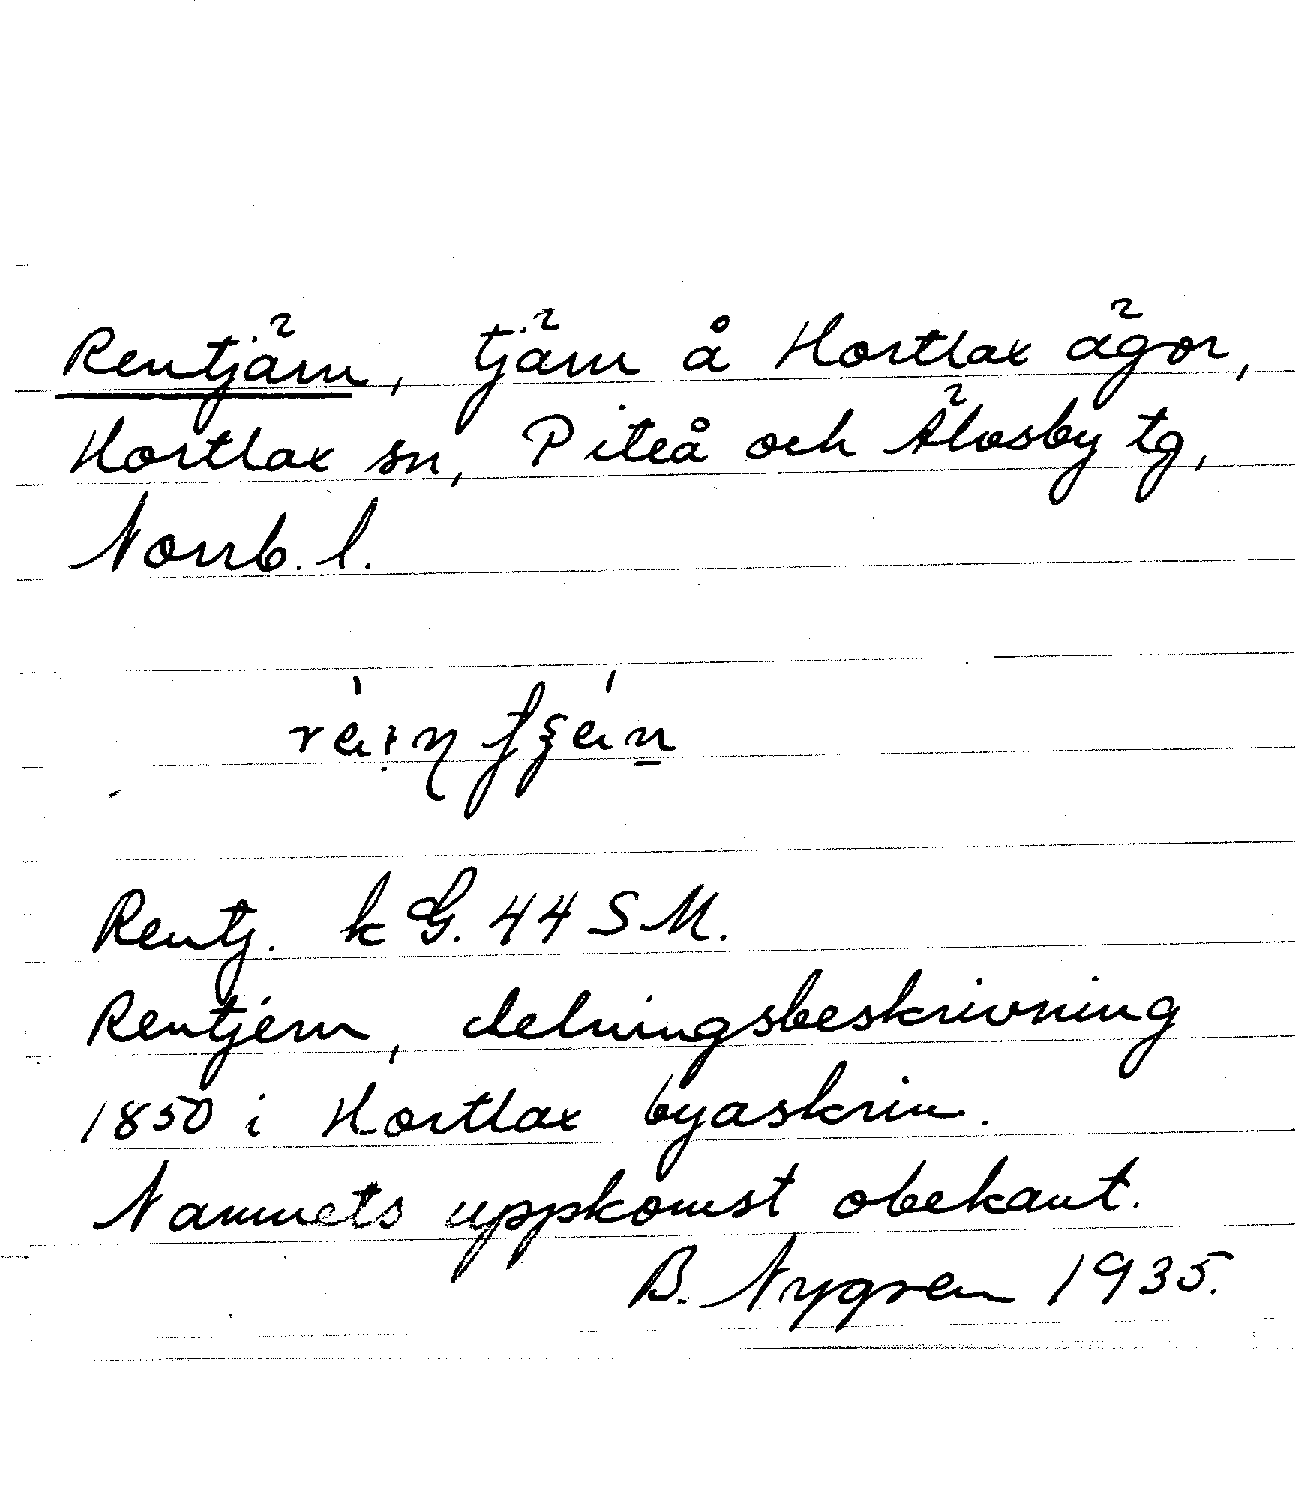 Rentjärn, tjärn å Hortlax ägor,
Hortlax sn, Piteå och Älvsby tg,
Norrb. l.
Rentj. k G. 44 SM.
Rentjern, delningsbeskrivning
1850 i Hortlax byaskrin.
Namnets uppkomst obekant.
B. Nygren 1935.